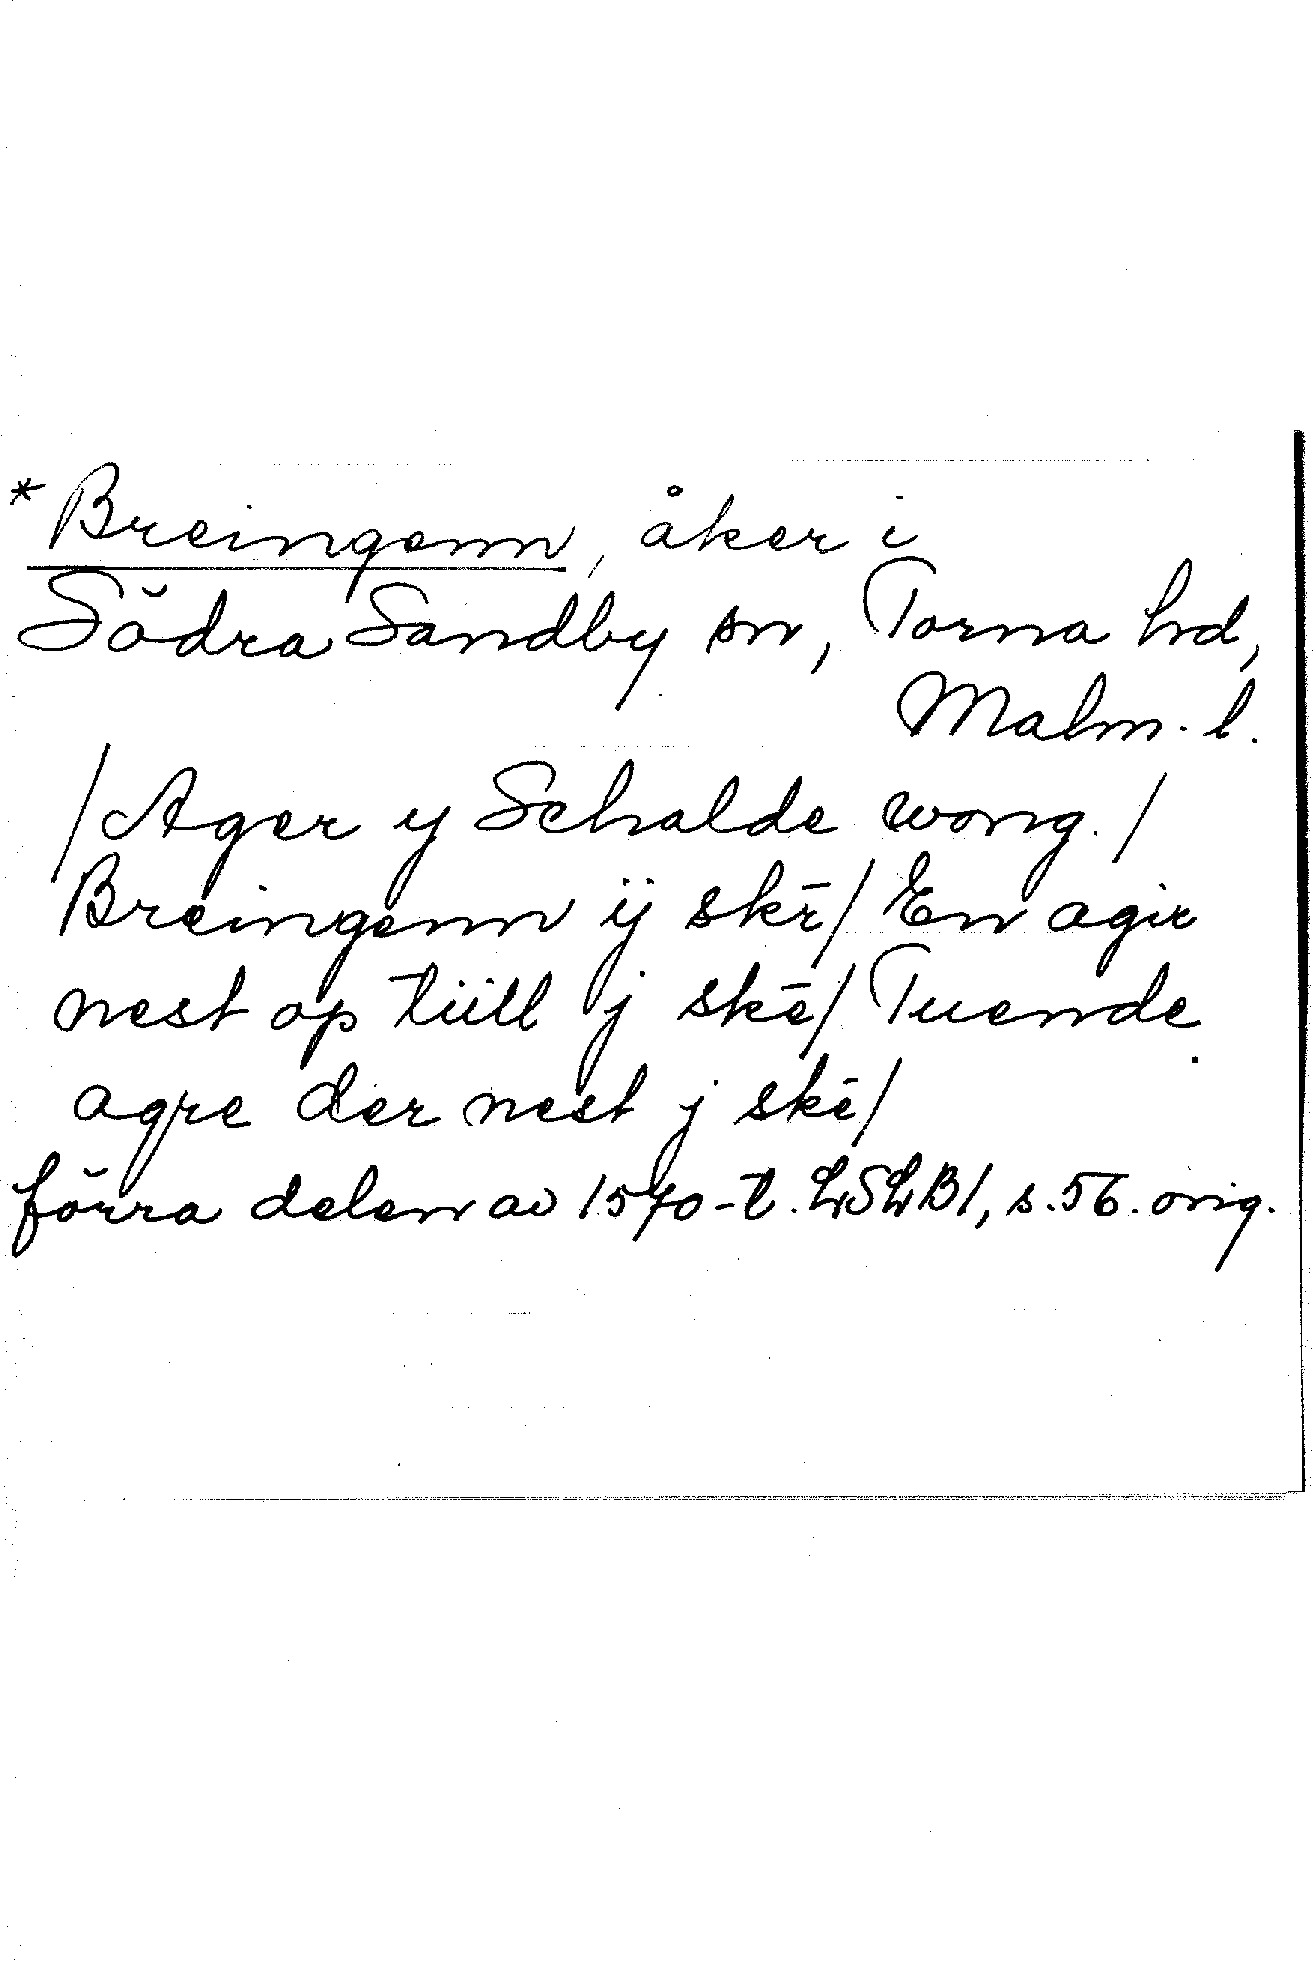 * Breingenn, åker i
Södra Sandby sn, Torna hd,
Malm. l.
/Ager y Schalde wong./
Breingenn ij skē/ En agir
nest op tiill j skē/ Tuende
agre der nest j skē/
förra delen av 1570-t. LSLB1, s. 56. orig.